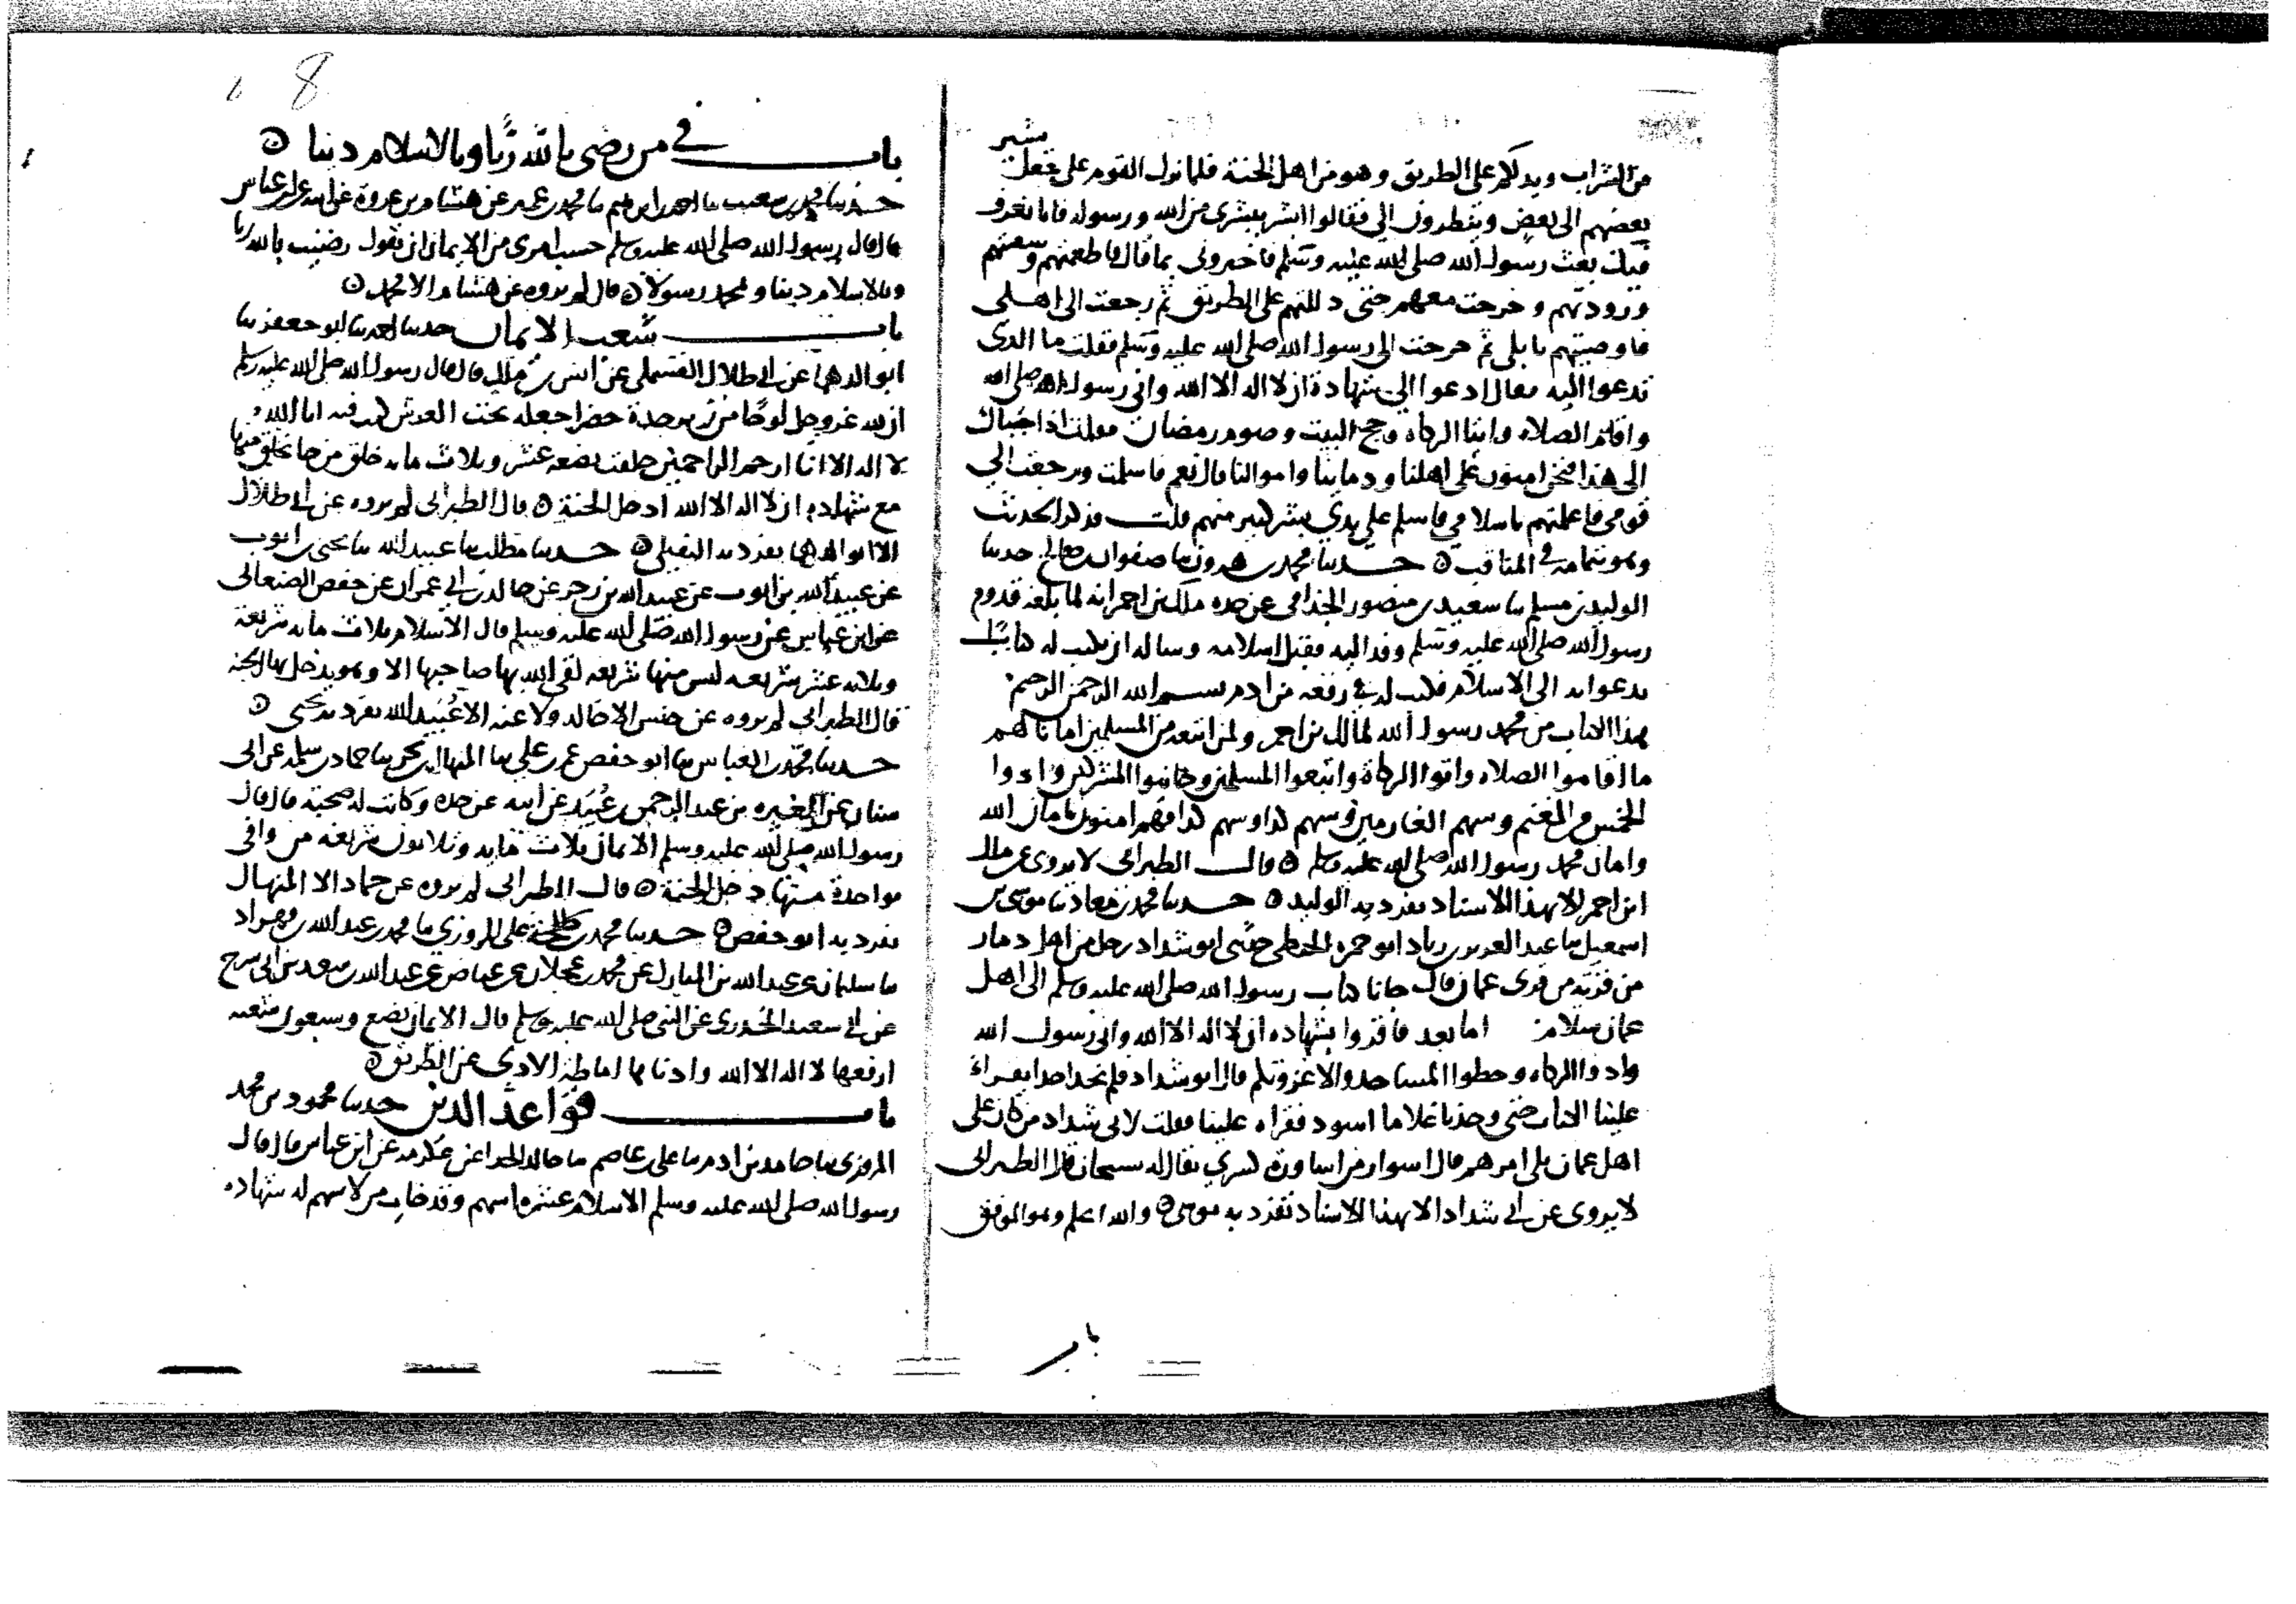 من الشراب ويدلكم على الطريق وهو من اهل الجنة فلما نزل القوم على جعل
بعضهم الى بعض وينظرون الي فقالوا ابشر ببشرى من الله ورسوله فانا نعرف
رسول الله صلى الله عليه وسلم فاخبروني بما قال فاطعمتهم وسقيتهم
وزودتهم وخرجت معهم حتى دللتهم على الطريق ثم رجعت الى اهلي
فاوصيتهم بابلي ثم خرجت الى رسول الله صلى الله عليه وسلم فقلت ما الذي
تدعوا اليه فقال ادعوا الى شهادة ان لا اله الا الله واني رسول الله صلى الله
واقام الصلاه وايتا الزكاه وحج البيت وصوم رمضان فقلت اذا اجبناك
الى هذا فنحن امنون على اهلنا ودماينا واموالنا قال نعم فاسلمت ورجعت الى
قومي فاعلمتهم باسلامي فاسلم على يدي بشر كبير منهم قلت فذكر الحديث
وهو بتمامه في المناقب حدثنا محمد بن هرون ثنا صفوان بن صالح حدثنا
الوليد بن مسلم ثنا سعيد بن منصور الجذامي عن جده ملك بن احمر انه لما بلغه قدوم
رسول الله صلى الله عليه وسلم وفد اليه فقبل اسلامه وساله ان يكتب له كتابا
يدعوا به الى الاسلام فكتب له في رقعه من ادم بسم الله الرحمن الرحيم
هذا الكتاب من محمد رسول الله لمالك بن احمر ولمن اتبعه من المسلمين امانا لهم
ما اقاموا الصلاه واتوا الزكاة واتبعوا المسلمين وجانبوا المشركين وادوا
الخمس من المغنم وسهم الغارمين وسهم كذا وسهم كذا فهم امنون بامان الله
وامان محمد رسول الله صلى الله عليه وسلم قال الطبراني لا يروى عن ملك
ابن احمر الا بهذا الاسناد تفرد به الوليد حدثنا محمد بن معاذ ثنا موسى بن
اسمعيل ثنا عبد العزيز بن زياد ابو حمزه الحبطي حدثني ابو شداد رجل من اهل دمار
من قرية من قرى عمان قال جانا كتاب رسول الله صلى الله عليه وسلم الى اهل
عمان سلام اما بعد فاقروا بشهاده ان لا اله الا الله واني رسول الله
وادوا الزكاه وخطوا المساجد والا غزوتكم قال ابو شداد فلم نجد احدا يقراء
علينا الكتاب حتى وجدنا غلاما اسود فقراه علينا فقلت لابي شداد من كان على
اهل عمان يلي امرهم قال اسوار من اساورة كسرى يقال له سيحان قال الطبراني
لا يروى عن ابي شداد الا بهذا الاسناد تفرد به موسى والله اعلم وهو الموفق
باب في من رضى بالله ربا وبالاسلام دينا
حدثنا محمد بن شعيب ثنا احمد بن ابرهيم ثنا محمد بن عمير عن هشام بن عروة عن ابيه عن ابن عباس
قال قال رسول الله صلى الله عليه وسلم حسب امرى من الايمان ان يقول رضيت بالله ربا
وبالاسلام دينا ومحمد رسولا قال لم يروه عن هشام الا محمد
باب شعب الايمان حدثنا احمد ثنا ابو جعفر ثنا
ابو الدهما عن ابي ظلال القسملي عن انس بن ملك قال قال رسول الله صلى الله عليه وسلم
ان لله عز وجل لوحا من زبرجدة خضرا جعله تحت العرش كتب فيه انا الله
لا اله الا انا ارحم الراحمين خلقت بضعه عشر وثلاث مايه خلق من جا بخلق منها
مع شهاده ان لا اله الا الله ادخل الجنة قال الطبراني لم يروه عن ابي ظلال
الا ابو الدهما تفرد به النفيلي حدثنا مطلب ثنا عبيد الله ثنا يحيى بن ايوب
عن عبيد الله بن ايوب عن عبيد الله بن زحر عن خالد بن ابي عمران عن حفص الصنعاني
عن ابن عباس عن رسول الله صلى الله عليه وسلم قال الاسلام ثلاث مايه شريعه
وثلاثه عشر شريعه ليس منها شريعه لقي الله بها صاحبها الا وهو يدخل بها الجنه
قال الطبراني لم يروه عن حنش الا خالد ولا عنه الا عبيد الله تفرد به يحيى
حدثنا محمد بن العباس ثنا ابو حفص عمر بن علي ثنا المنهال بن بحر ثنا حماد بن سلمه عن ابي
سنان عن المغيره بن عبد الرحمن بن عبيد عن ابيه عن جده وكانت له صحبة قال قال
رسول الله صلى الله عليه وسلم الايمان ثلاث مايه وثلاثون شريعه من وافى
بواحدة منها دخل الجنة قال الطبراني لم يروه عن حماد الا المنهال
تفرد به ابو حفص حدثنا محمد بن علي المروزي ثنا محمد بن عبد الله بن قهزاد
عبد الله بن المبارك عن محمد بن عجلان عن عياض بن عبد الله بن سعد بن ابي سرح
عن ابي سعيد الخدري عن النبي صلى الله عليه وسلم قال الايمان بضع وسبعون شعبه
ارفعها لا اله الا الله وادناها اماطة الاذى عن الطريق
باب قواعد الدين حدثنا محمود بن محمد
المروزي ثنا حامد بن ادم ثنا علي بن عاصم ثنا خالد الحذا عن عكرمه عن ابن عباس قال قال
رسول الله صلى الله عليه وسلم الاسلام عشره اسهم وقد خاب من لا سهم له شهاده